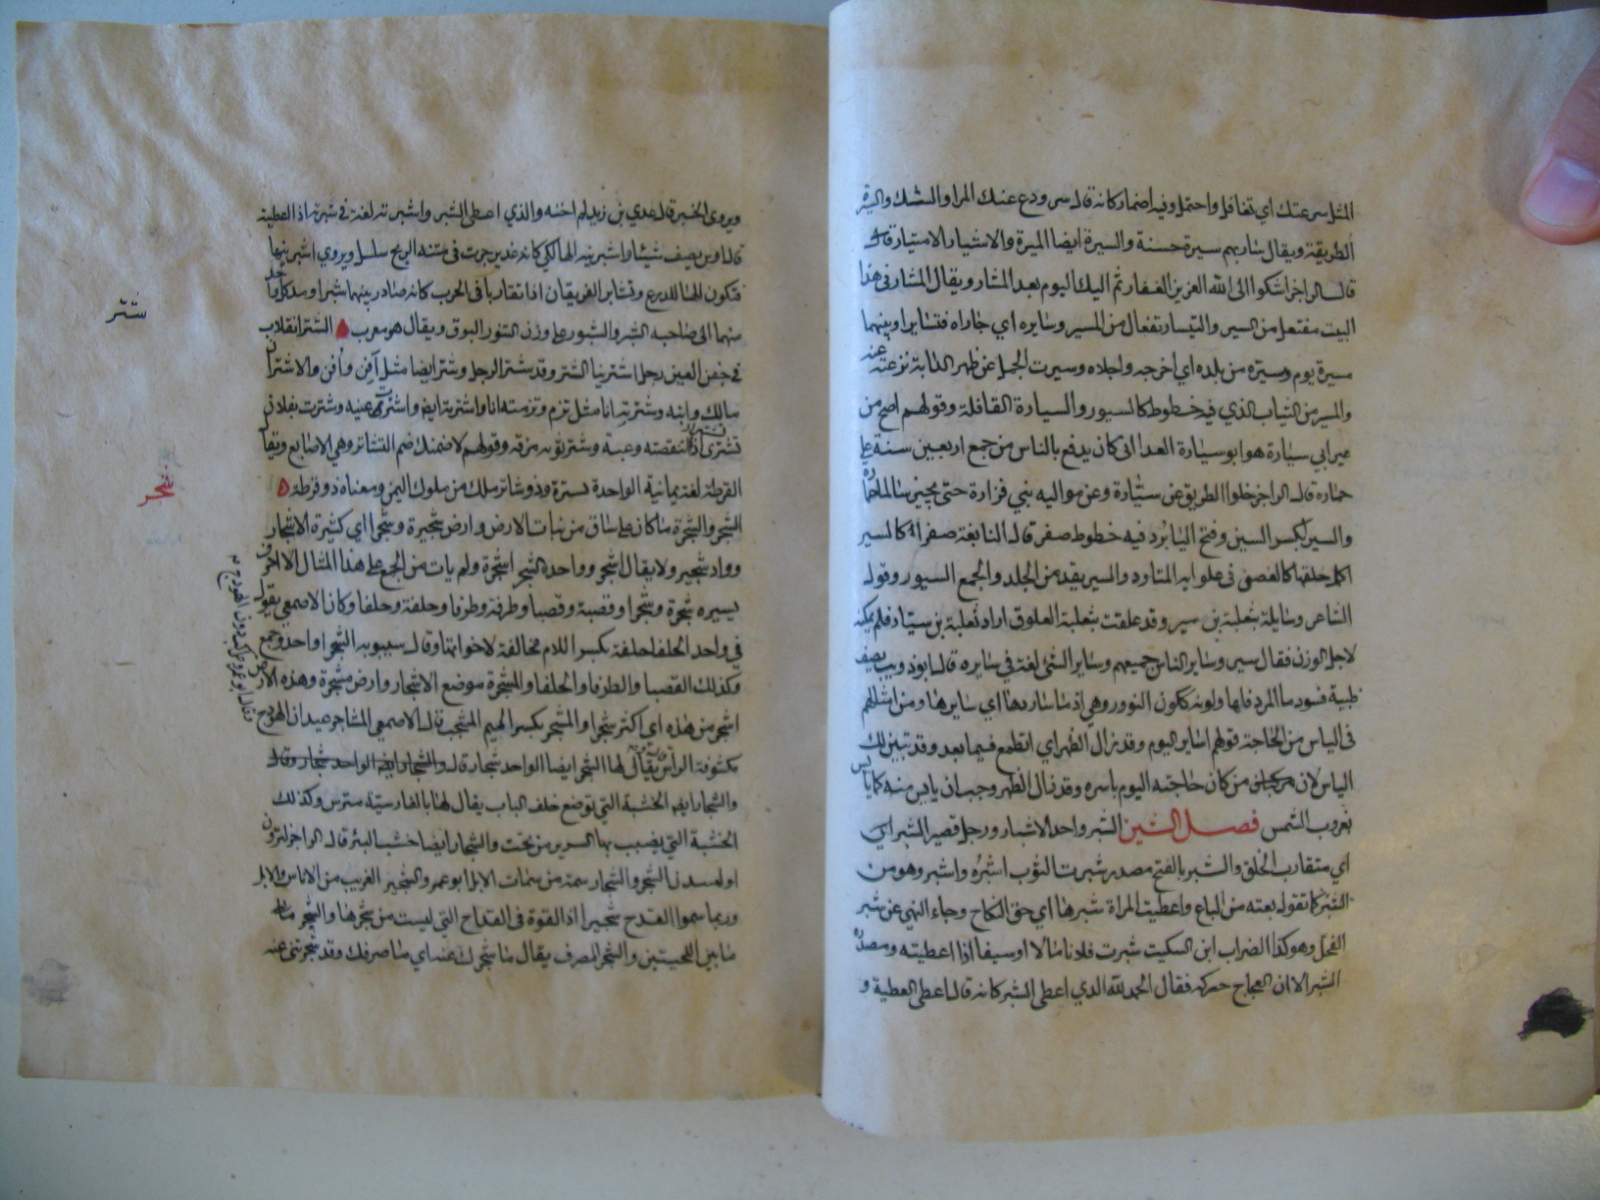 المثل سر عنك اي تغافل واحتمل وفيه اضمار كانه قال سر ودع عنك المرا والشك والسيرة
الطريقة ويقال سار بهم سيرة حسنة والسيرة ايضا الميرة والاستيار الامتيار قال
الراجز اشكوا الى الله العزيز الغفار ثم اليك اليوم بعد المستار ويقال المستار في هذا
البيت مفتعل من السير والتسيار تفعال من المسير وسايره اي جاراه فتسايرا وبينهما
مسيرة يوم وسيره من بلده اي اخرجه واجلاه وسيرت الجل عن ظهر الدابة نزعته عنه
والمسير من الثياب الذي فيه خطوط كالسيور والسيارة القافلة وقولهم اصح من
عير ابي سيارة هو ابو سيارة العدواني كان يدفع بالناس من جمع اربعين سنة على
حماره قال الراجز خلوا الطريق عن ابي سيارة وعن مواليه بني فزارة حتى يجيز سالما حماره
والسيرا بكسر السين وفتح اليا برد فيه خطوط صفر قال النابغة صفرا كالسيرا
اكمل خلقها كالغصن في غلوايه المتاود والسير يقد من الجلد والجمع السيور وقول
الشاعر وسايلة بثعلبة بن سير وقد علقت بثعلبة العلوق اراد ثعلبة بن سيار فلم يمكنه
لاجل الوزن فقال سير وساير الناس جميعهم وساير الشي لغة في سايره قال ابو ذويب يصف
ظبية فسود ما المرد فاها ولونه كلون النوور وهي ادما سارها اي سايرها ومن امثالهم
في الياس من الحاجة قولهم اساير اليوم وقد زال الظهر اي اتطمع فيما بعد وقد تبين لك
الياس لان من كان حاجته اليوم باسره وقد زال الظهر وجب ان يايس منه كما يايس
بغروب الشمس فصل الشين الشبر واحد الاشبار ورجل قصير الشبر اي
اي متقارب الخلق والشبر بالفتح مصدر شبرت الثوب اشبره واشبره وهو من
الشبر كما تقول بعته من الباع واعطيت المراة شبرها اي حق النكاح وجاء النهي عن شبر
الفحل وهو كذا الضراب ابن السكيت شبرت فلانا مالا او سيفا اذا اعطيته ومصدره
الشبر الا ان العجاج حركه فقال الحمد لله الذي اعطى الشبر كانه قال اعطى العطية و
ويروى الخير قال عدي بن زيد لم اخنه والذي اعطى الشبر واشبرته لغة في شبرته اذا اعطيته
قال اوس يصف شيئا واشبرنيه الهالكي كانه غدير جرت في متنه الريح سلسل ويروي اشبرنيها
فتكون الها للدرع وتشابر الفريقان اذا تقاربا في الحرب كانه صار بينهما شبرا ومد كل واحد
منهما الى صاحبه الشبر والشبور على وزن التنور البوق ويقال هو معرب الشتر انقلاب
في جفن العين رجل اشتر بين الشتر وقد شتر الرجل وشتر ايضا مثل افن وافن والاشتران
مالك وابنه وشترته انا مثل ثرم وثرمته انا واشترته ايضا وانشترت عينه وشترت بفلان
تشتيرا اذا تنقصته وعبته وشتر ثوبه مزقه وقولهم لاضمنك ضم الشناتر وهي الاصابع ويقال
القرطة لغة يمانية الواحدة شنترة وذو شناتر ملك من ملوك اليمن ومعناه ذو قرطة
الشجر والشجرة ما كان على ساق من نبات الارض وارض شجيرة وشجرا اي كثيرة الاشجار
وواد شجير ولا يقال اشجر وواحد الشجرا شجرة ولم يات من الجمع على هذا المثال الا احرف
يسيره شجرة وشجرا وقصبة وقصبا وطرفة وطرفا وحلفة وحلفا وكان الاصمعي يقول
في واحد الحلفا حلفة بكسر اللام مخالفة لاخواتها وقال سيبويه الشجرا واحد وجمع
وكذلك القصبا والطرفا والحلفا والمشجرة موضع الاشجار وارض مشجرة وهذه الارض
اشجر من هذه اي اكثر شجرا والمشجر بكسر الميم المشجب قال الاصمعي المشاجر عيدان الهودج
مكشوفة الراس يقال لها الشجر ايضا الواحد شجار قال والشجار ايضا الواحد شجار وقال
والشجار ايضا الخشبة التي توضع خلف الباب يقال لها بالفارسية مترس وكذلك
الخشبة التي يضبب بها السرير من تحت والشجار ايضا خشب البئر قال الراجز لتروين
او لتبيدن الشجر والشجار سمة من سمات الابل ابو عمرو الشجير الغريب من الناس والابل
وربما سموا القدح شجيرا اذا القوه في القداح التي ليست من شجرها والشجر
ما بين اللحيين والشجر الصرف يقال ما شجرك عنه اي ما صرفك وقد شجرتني عنه
شتر
شجر
وقال ابو عمرو مراكب دون الهودج